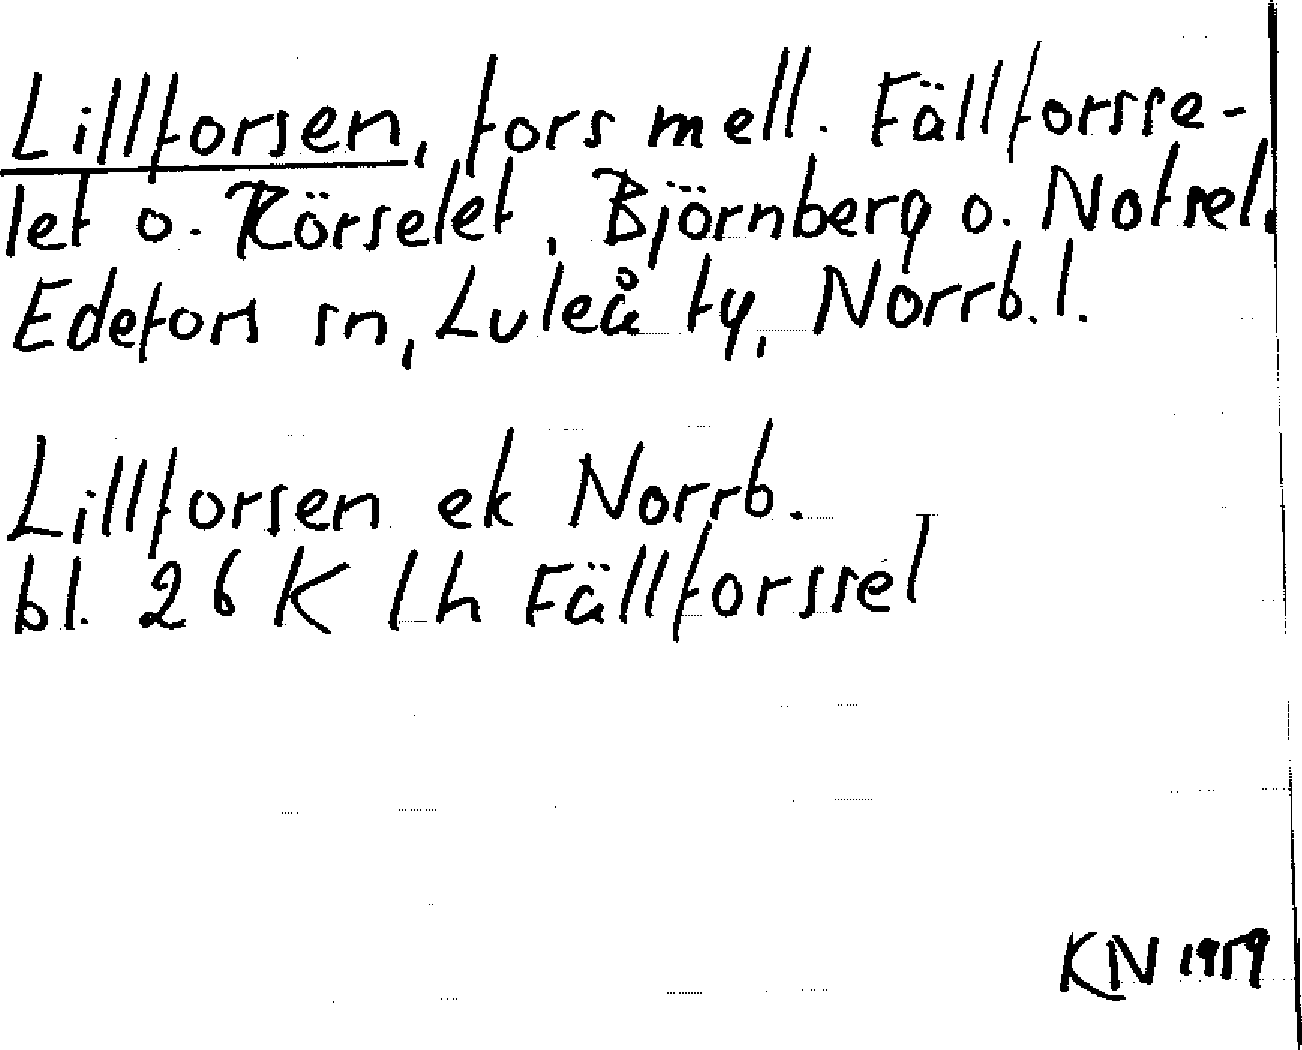 Lillforsen, fors mell. Fällforsse-
let o. Rörselet, Björnberg o. Notsel,
Edefors sn, Luleå ty, Norrb. l.
Lillforsen ek Norrb.
bl. 26 K lh Fällforssel
KN 1959